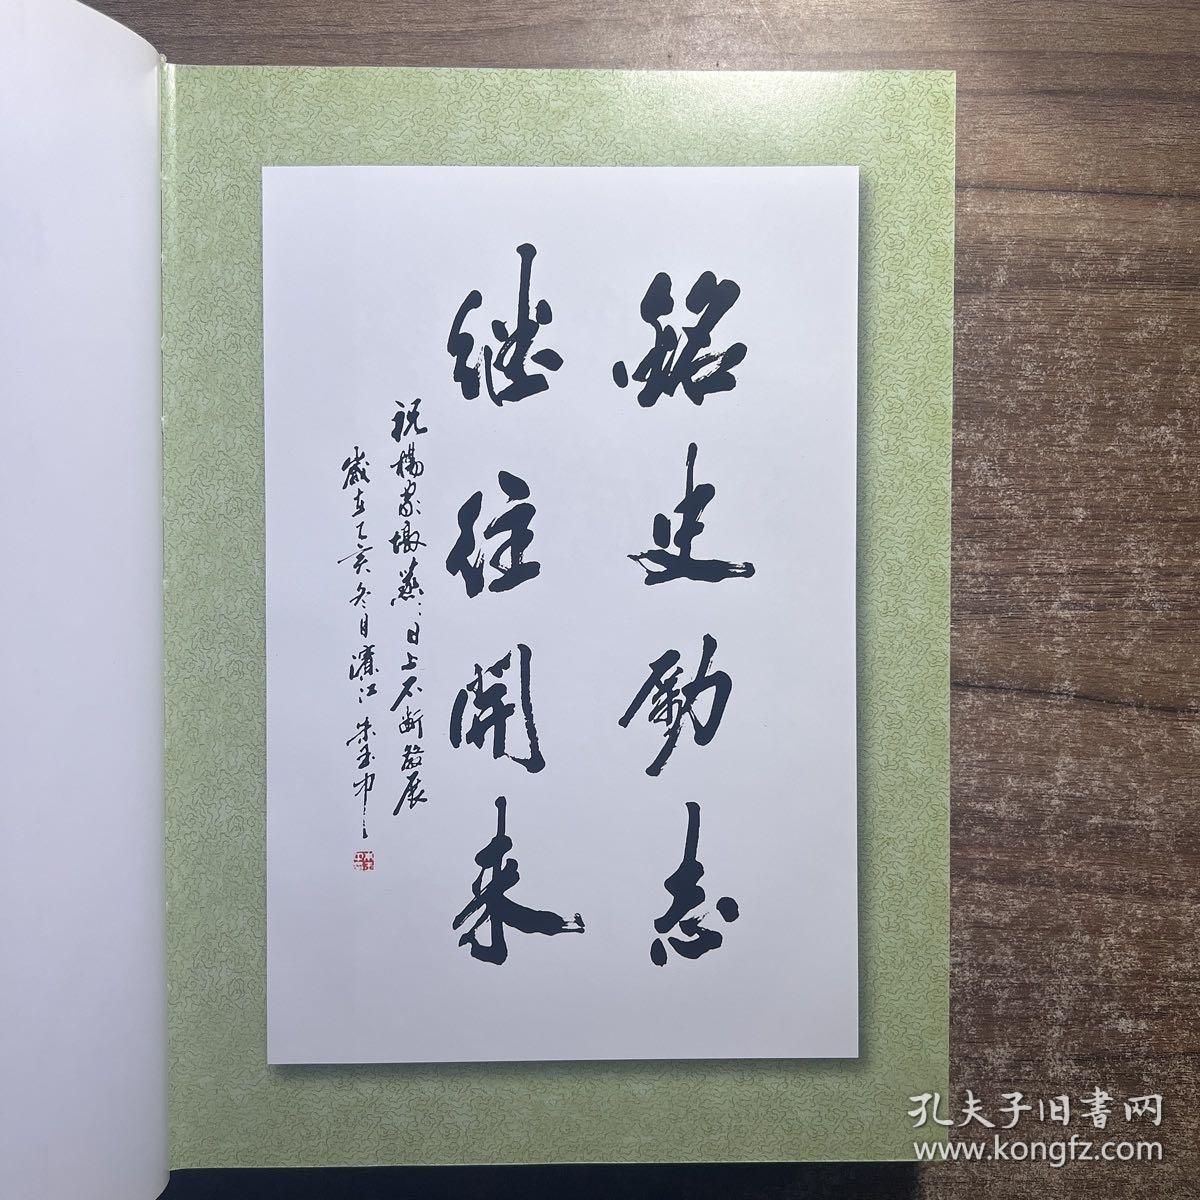 銘史励志
继往開来
祝楊家墩蒸：日上不断發展
歲在乙亥冬月濂江朱玉中
孔夫子旧書网
www.kongfz.com